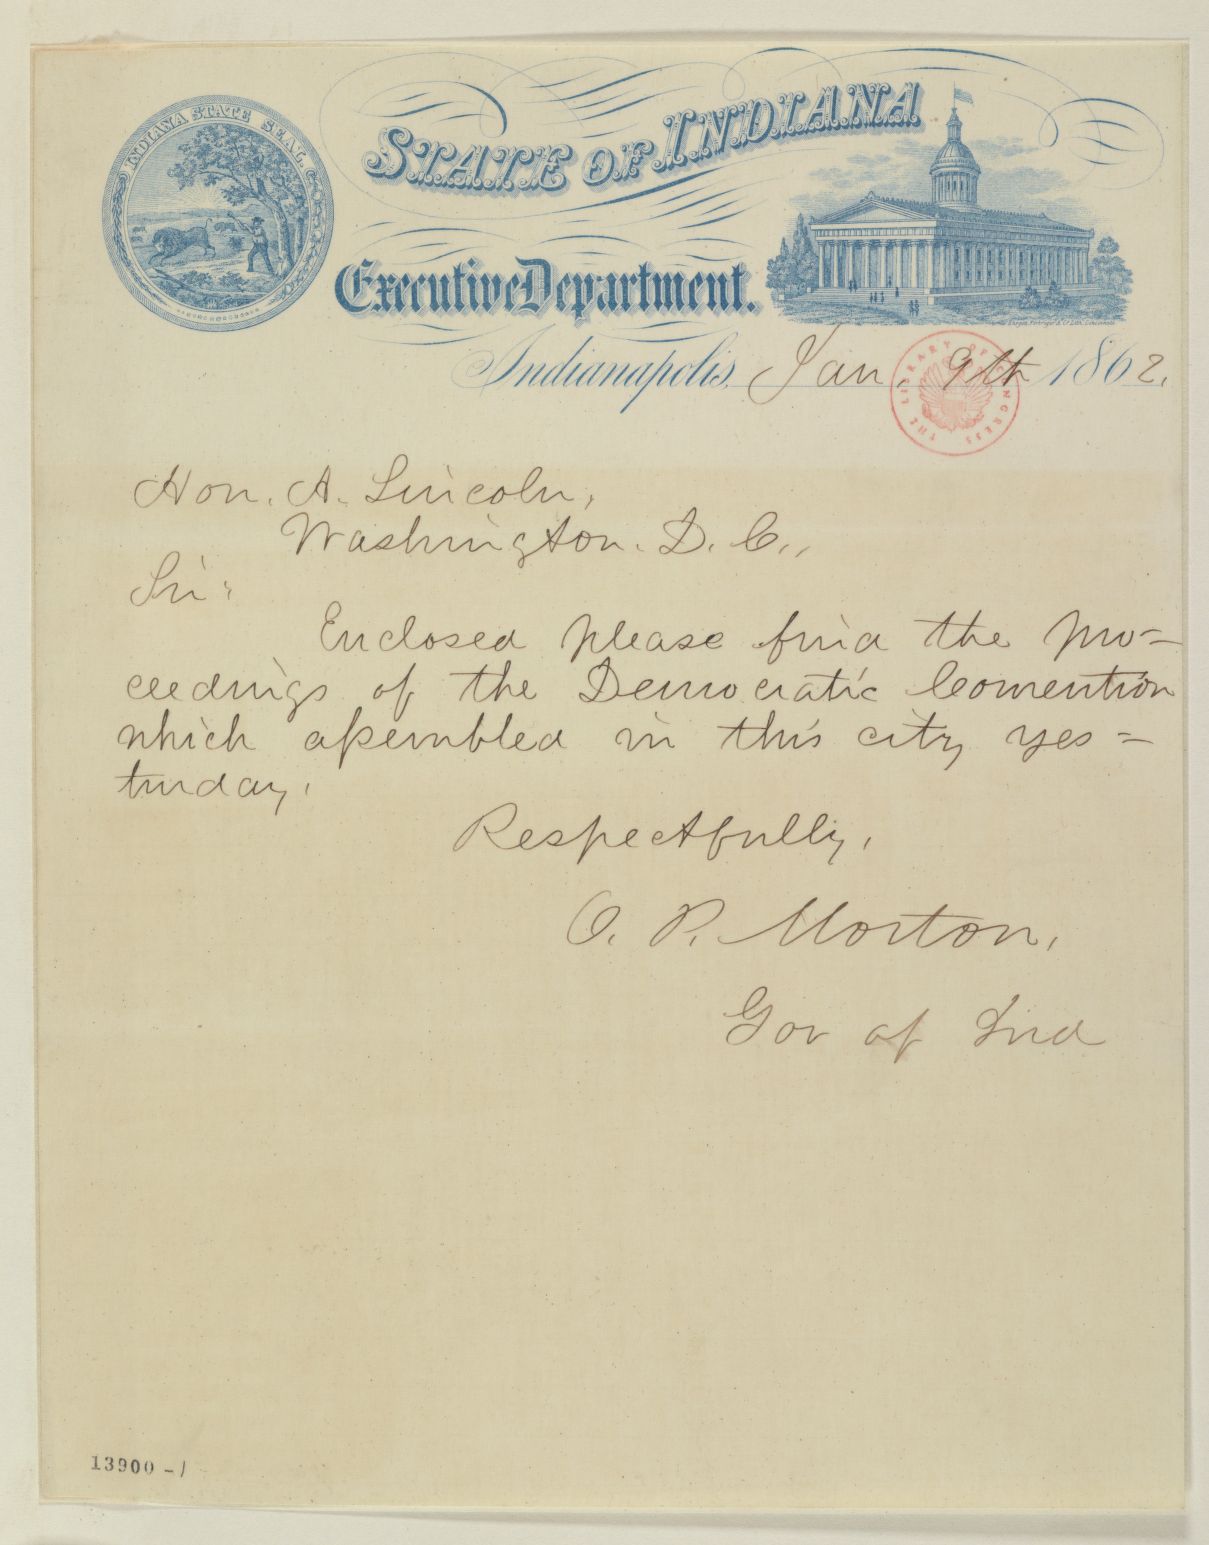 INDIANA STATE SEAL.
STATE OF INDIANA
Executive Department.
Indianapolis, Jan. 9th 1862.
THE LIBRARY OF CONGRESS
Hon. A. Lincoln,
Washington. D. C.,
Sir:
Enclosed please find the pro=
ceedings of the Democratic Convention
which assembled in this city yes=
terday.
Respectfully,
O. P. Morton,
Gov of Ind
13900-1